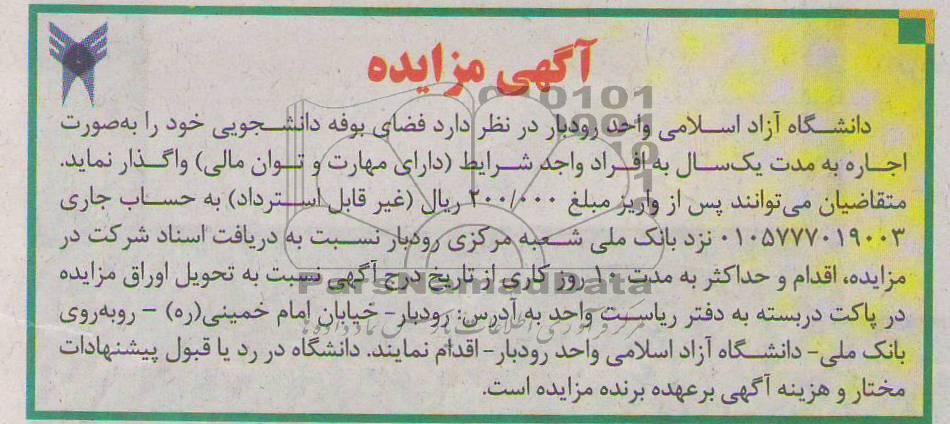 آگهی مزایده
دانشگاه آزاد اسلامی واحد رودبار در نظر دارد فضای بوفه دانشجویی خود را به‌صورت
اجاره به مدت یک‌سال به افراد واجد شرایط (دارای مهارت و توان مالی) واگذار نماید.
متقاضیان می‌توانند پس از واریز مبلغ ۲۰۰/۰۰۰ ریال (غیر قابل استرداد) به حساب جاری
۰۱۰۵۷۷۷۰۱۹۰۰۳ نزد بانک ملی شعبه مرکزی رودبار نسبت به دریافت اسناد شرکت در
مزایده، اقدام و حداکثر به مدت ۱۰ روز کاری از تاریخ درج آگهی نسبت به تحویل اوراق مزایده
در پاکت دربسته به دفتر ریاست واحد به آدرس: رودبار- خیابان امام خمینی(ره) – روبه‌روی
بانک ملی- دانشگاه آزاد اسلامی واحد رودبار- اقدام نمایند. دانشگاه در رد یا قبول پیشنهادات
مختار و هزینه آگهی برعهده برنده مزایده است.
ParsNamadData